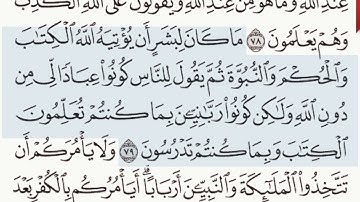 عِندِ ٱللَّهِ وَمَا هُوَ مِنْ عِندِ ٱللَّهِ وَيَقُولُونَ عَلَى ٱللَّهِ ٱلْكَذِبَ
وَهُمْ يَعْلَمُونَ ٧٨ مَا كَانَ لِبَشَرٍ أَن يُؤْتِيَهُ ٱللَّهُ ٱلْكِتَٰبَ
وَٱلْحُكْمَ وَٱلنُّبُوَّةَ ثُمَّ يَقُولَ لِلنَّاسِ كُونُوا۟ عِبَادًا لِّى مِن
دُونِ ٱللَّهِ وَلَٰكِن كُونُوا۟ رَبَّٰنِيِّـۧنَ بِمَا كُنتُمْ تُعَلِّمُونَ
ٱلْكِتَٰبَ وَبِمَا كُنتُمْ تَدْرُسُونَ ٧٩ وَلَا يَأْمُرَكُمْ أَن
تَتَّخِذُوا۟ ٱلْمَلَٰٓئِكَةَ وَٱلنَّبِيِّـۧنَ أَرْبَابًا ۗ أَيَأْمُرُكُم بِٱلْكُفْرِ بَعْدَ